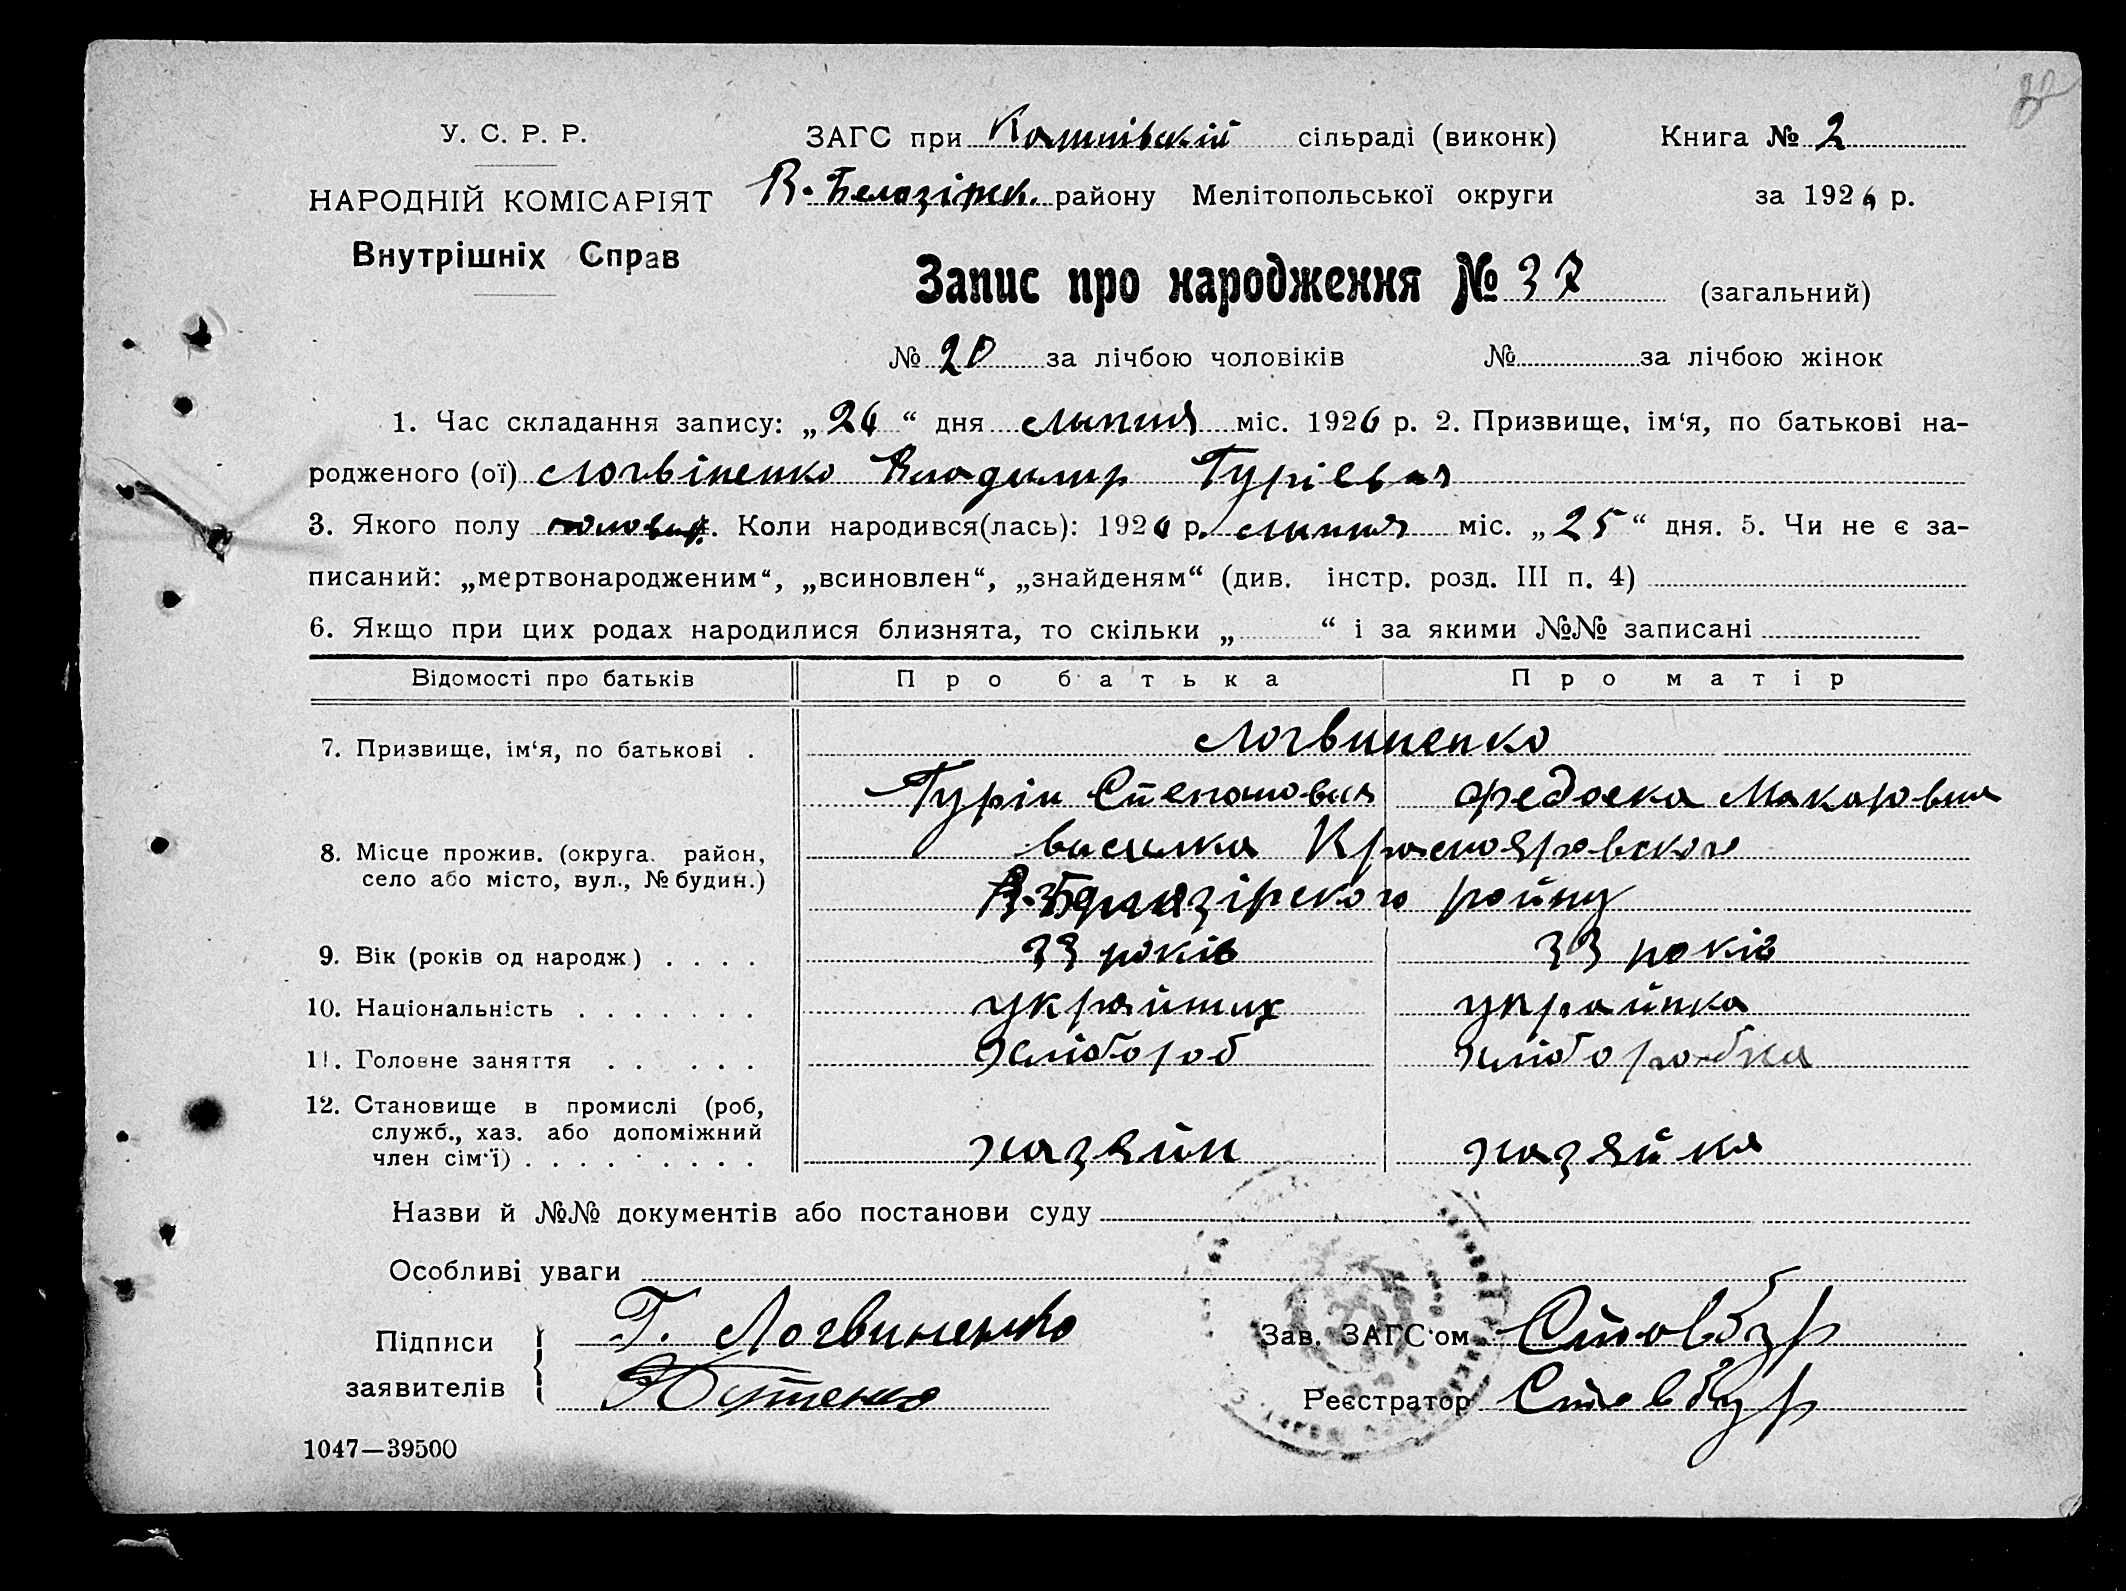 У. С. Р. Р.
ЗАГС при сільраді (виконк) Книга № 2
НАРОДНІЙ КОМІСАРІЯТ
В. району Мелітопольської округи за 1926 р.
Внутрішніх Справ
Запис про народження № 37 (загальний)
№ 20 за лічбою чоловіків № за лічбою жінок
1. Час складання запису: „26“ дня липня міс. 1926 р. 2. Призвище, ім‘я, по батькові на-
родженого (ої) Логвіненко Владимир Гурієвич
3. Якого полу Коли народився(лась): 1926 р. липня міс. „25“ дня. 5. Чи не є за-
писаний: „мертвонародженим“, „всиновлен“, „знайденям“ (див. інстр. розд. III п. 4)
6. Якщо при цих родах народилися близнята, то скільки „ “ і за якими №№ записані
Відомості про батьків Про батька Про матір
7. Призвище, ім‘я, по батькові .
Логвиненко
Гурін Степанович Макаровна
8. Місце прожив. (округа. район,
село або місто, вул., № будин.)
виселка Краснояровского
району
9. Вік (років од народж) . . . . 33 років 33 років
10. Національність . . . . . . . україниц українка
11. Головне заняття . . . . . хлібороб хліборобка
12. Становище в промислі (роб,
служб., хаз. або допоміжний
член сім‘ї) . . . . . . . . . хазяйн хазяйка
Назви й №№ документів або постанови суду
Особливі уваги
Підписи
заявителів
Г. Логвиненко
Зав. ЗАГС‘ом Стовбур
Реєстратор Стовбур
1047—39500